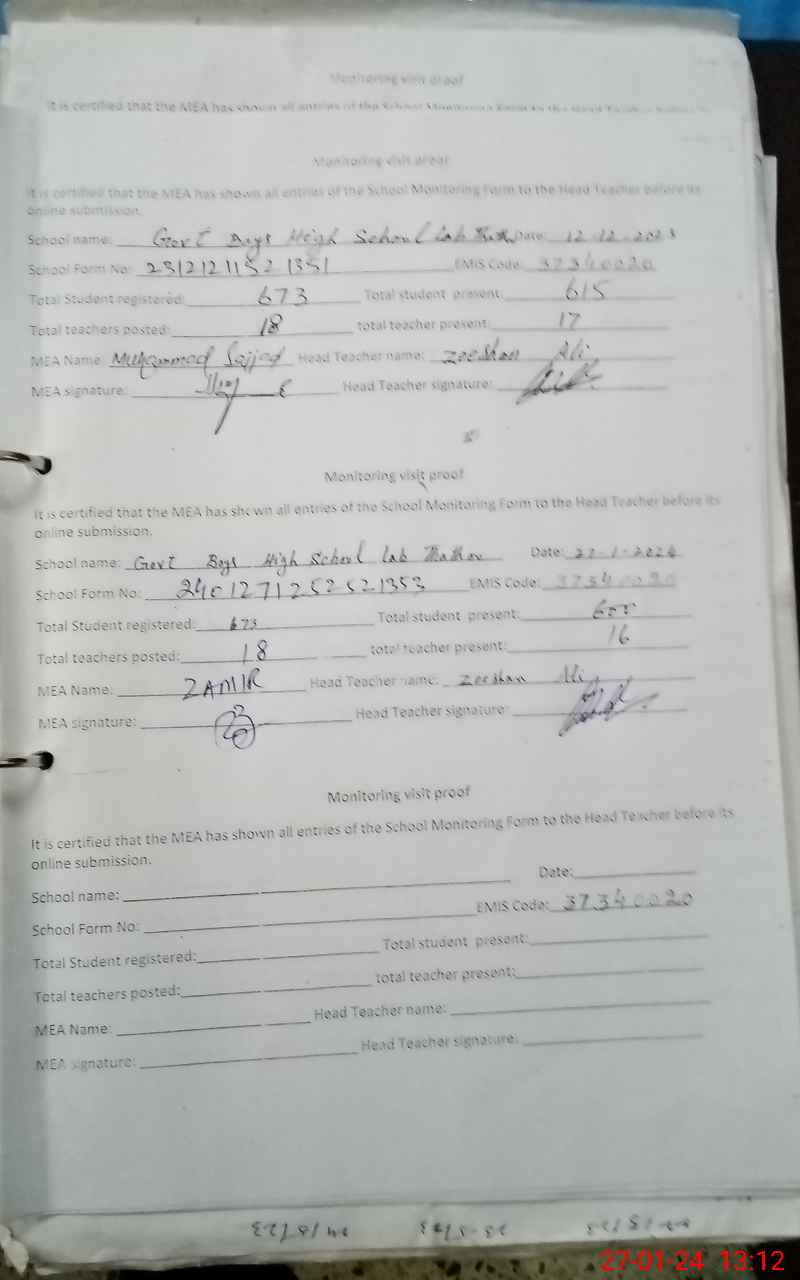 Monitoring visit proof
It is certified that the MEA has shown all entries of the School Monitoring Form to the Head Teacher
Monitoring visit proof
It is certified that the MEA has shown all entries of the School Monitoring Form to the Head Teacher before its
online submission.
School name: Govt Boys Heigh School Lab Date: 12-12-2023
School Form No: EMIS Code: 37340020
Total Student registered: 673 Total student present: 615
Total teachers posted: 18 total teacher present: 17
MEA Name Muhammad Sajjad Head Teacher name: Zeeshan Ali
MEA signature: Head Teacher signature:
Monitoring visit proof
It is certified that the MEA has shown all entries of the School Monitoring Form to the Head Teacher before its
online submission.
School name: Govt Boys High School Lab Date:
School Form No: EMIS Code: 37340020
Total Student registered: 673 Total student present:
Total teachers posted: 18 total teacher present: 16
MEA Name: ZAMIR Head Teacher name: Zeeshan Ali
MEA signature: Head Teacher signature:
Monitoring visit proof
It is certified that the MEA has shown all entries of the School Monitoring Form to the Head Teacher before its
online submission.
School name: Date:
School Form No: EMIS Code: 37340020
Total Student registered: Total student present:
Total teachers posted: total teacher present:
MEA Name: Head Teacher name:
MEA signature: Head Teacher signature:
27-01-24 13:12